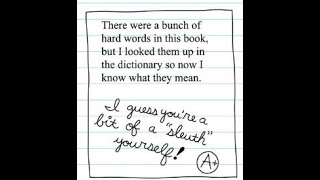 There were a bunch of
hard words in this book,
but I looked them up in
the dictionary so now I
know what they mean.
I guess you're a
bit of a "sleuth"
yourself!
A+